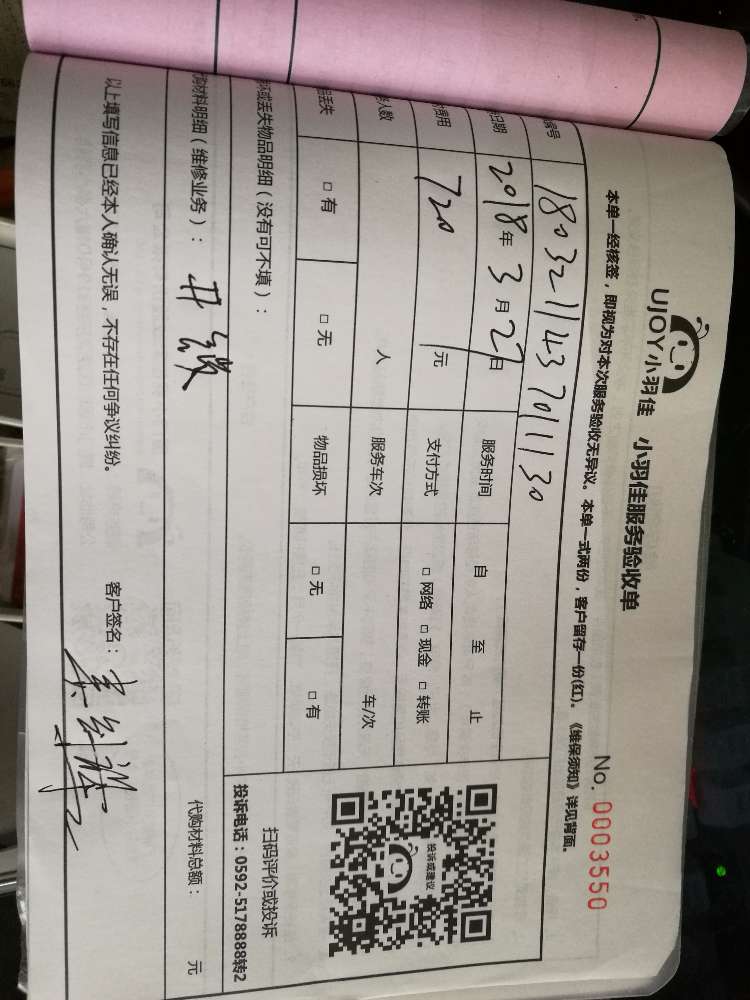 UJOY小羽佳 小羽佳服务验收单
No. 0003550
本单一经核签，即视为对本次服务验收无异议。本单一式两份，客户留存一份(红)。《维保须知》详见背面。
编号 180321143701130
日期 2018年3月27日 服务时间 自 至 止
费用 720 元 支付方式 □ 网络 □ 现金 □ 转账
人数 人 服务车次 车/次
丢失 □ 有 □ 无 物品损坏 □ 无 □ 有
投诉或建议
扫码评价或投诉
投诉电话：0592-5178888转2
坏或丢失物品明细（没有可不填）：
购材料明细（维修业务）：
代购材料总额： 元
以上填写信息已经本人确认无误，不存在任何争议纠纷。 客户签名：